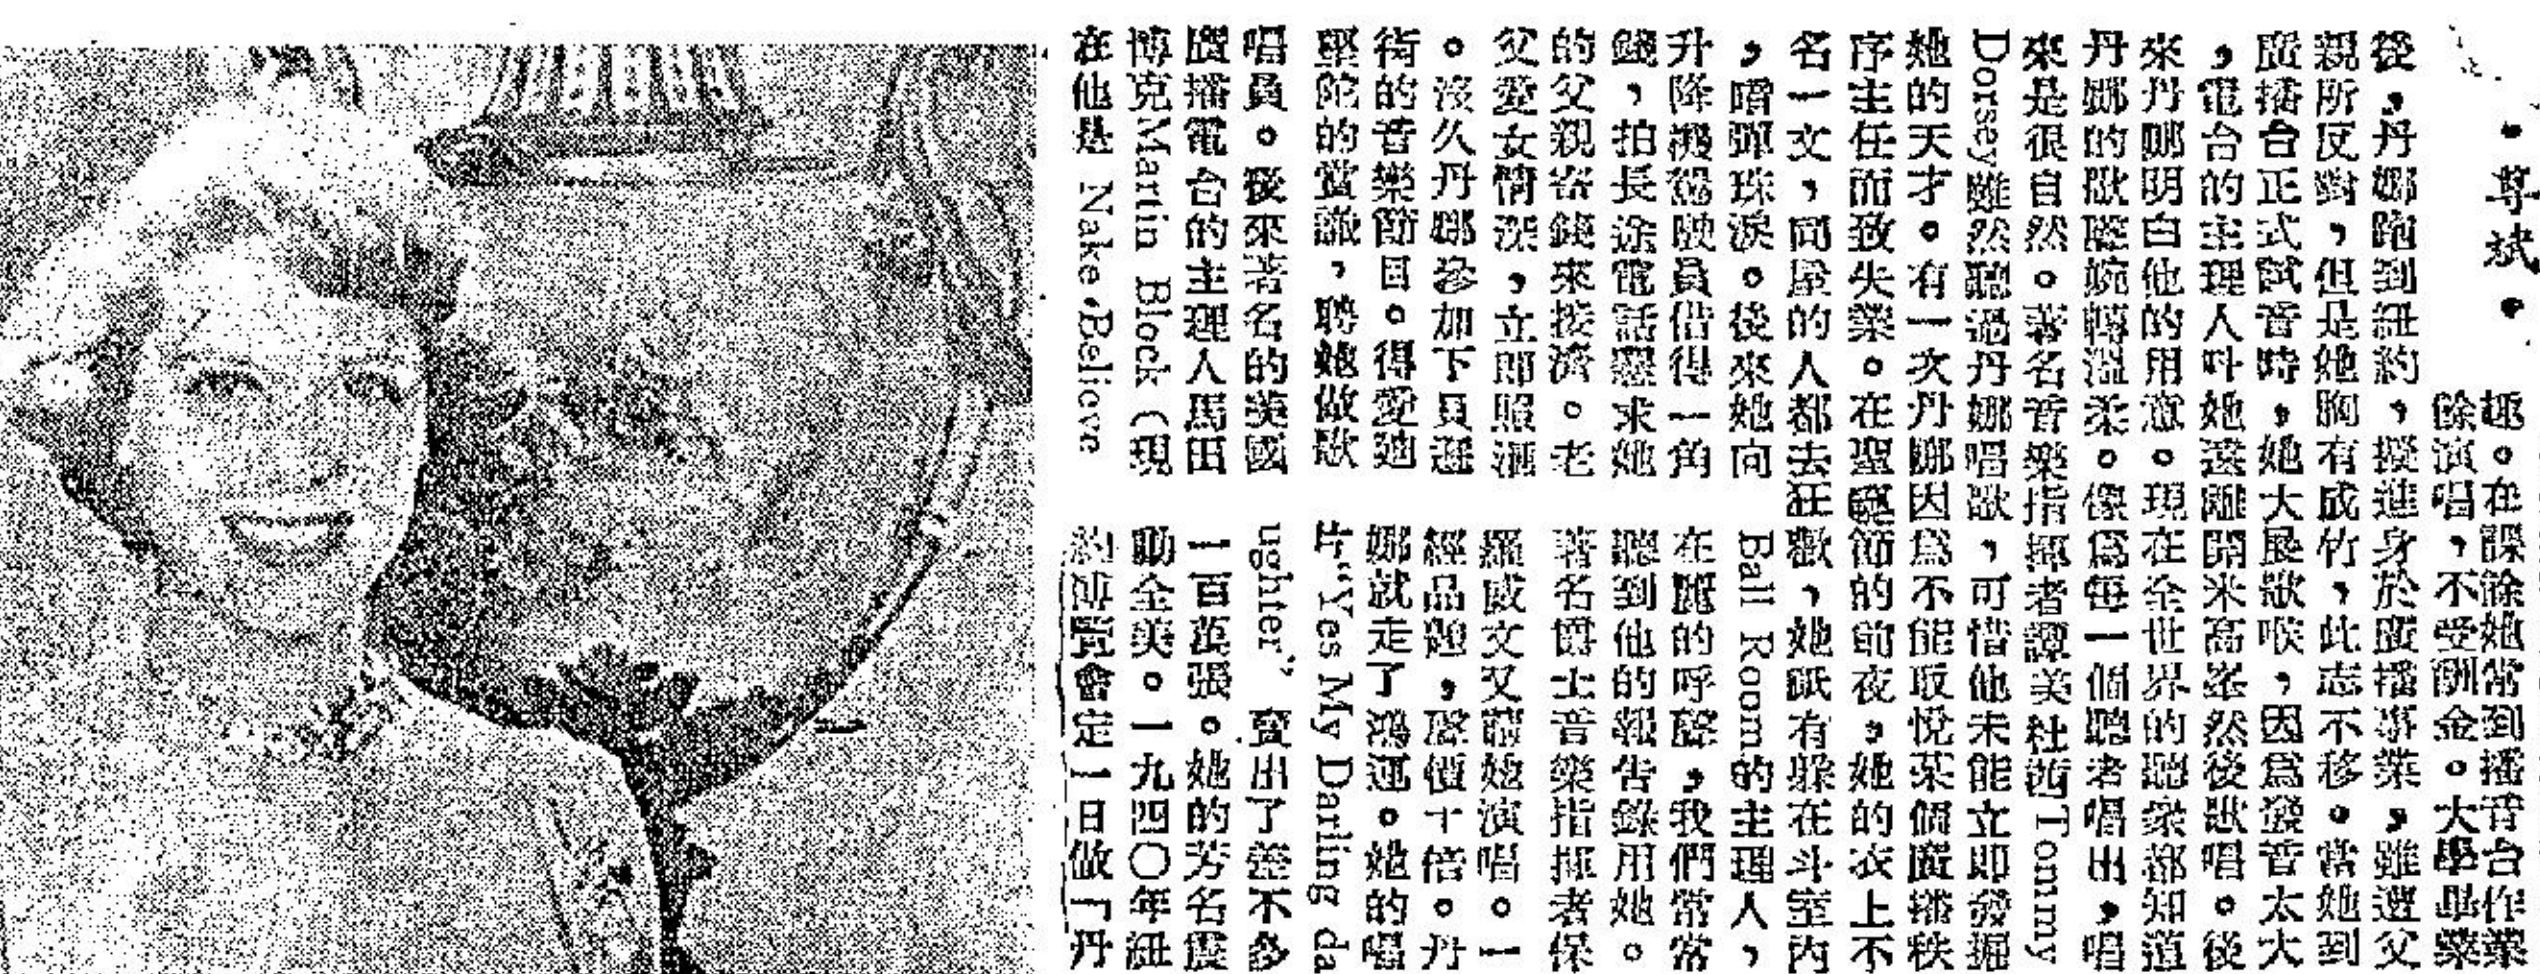 •尊斌•
趣。在課餘她常到播音台作業
餘演唱,不受酬金。大學畢業
後,丹娜跑到紐約,擬進身於廣播事業,雖遭父
親所反對,但是她胸有成竹,此志不移。當她到
廣播台正式試音時,她大展歌喉,因爲發音太大
,電台的主理人叫她遠離開米高峯然後歌唱。後
來丹娜明白他的用意。現在全世界的聽衆都知道
丹娜的歌聲婉轉溫柔。像爲每一個聽者唱出,唱
來是很自然。著名音樂指揮者譚美杜西Tommy
Dorsey雖然聽過丹娜唱歌,可惜他未能立即發掘
她的天才。有一次丹娜因爲不能取悅某個廣播秩
序主任而致失業。在聖誕節的前夜,她的衣上不
名一文,同屋的人都去狂歡,她祇有躲在斗室內
,暗彈珠淚。後來她向
升降機駕駛員借得一角
錢,拍長途電話懇求她
的父親寄錢來接濟。老
父愛女情深,立即照滙
。沒久丹娜參加下員遜
街的音樂節目。得愛廸
堅陀的賞識,聘她做歌
唱員。後來著名的美國
廣播電台的主理人馬田
博克Martin Block(現
在他是 Nake-Believe
Ball Room的主理人,
在麗的呼聲,我們常常
聽到他的報告錄用她。
著名爵士音樂指揮者保
羅威文又請她演唱。一
經品題,聲價十倍。丹
娜就走了鴻運。她的唱
片“Yes My Darling da
ughter” 賣出了差不多
一百萬張。她的芳名震
動全美。一九四〇年紐
約博覽會定一日做「丹